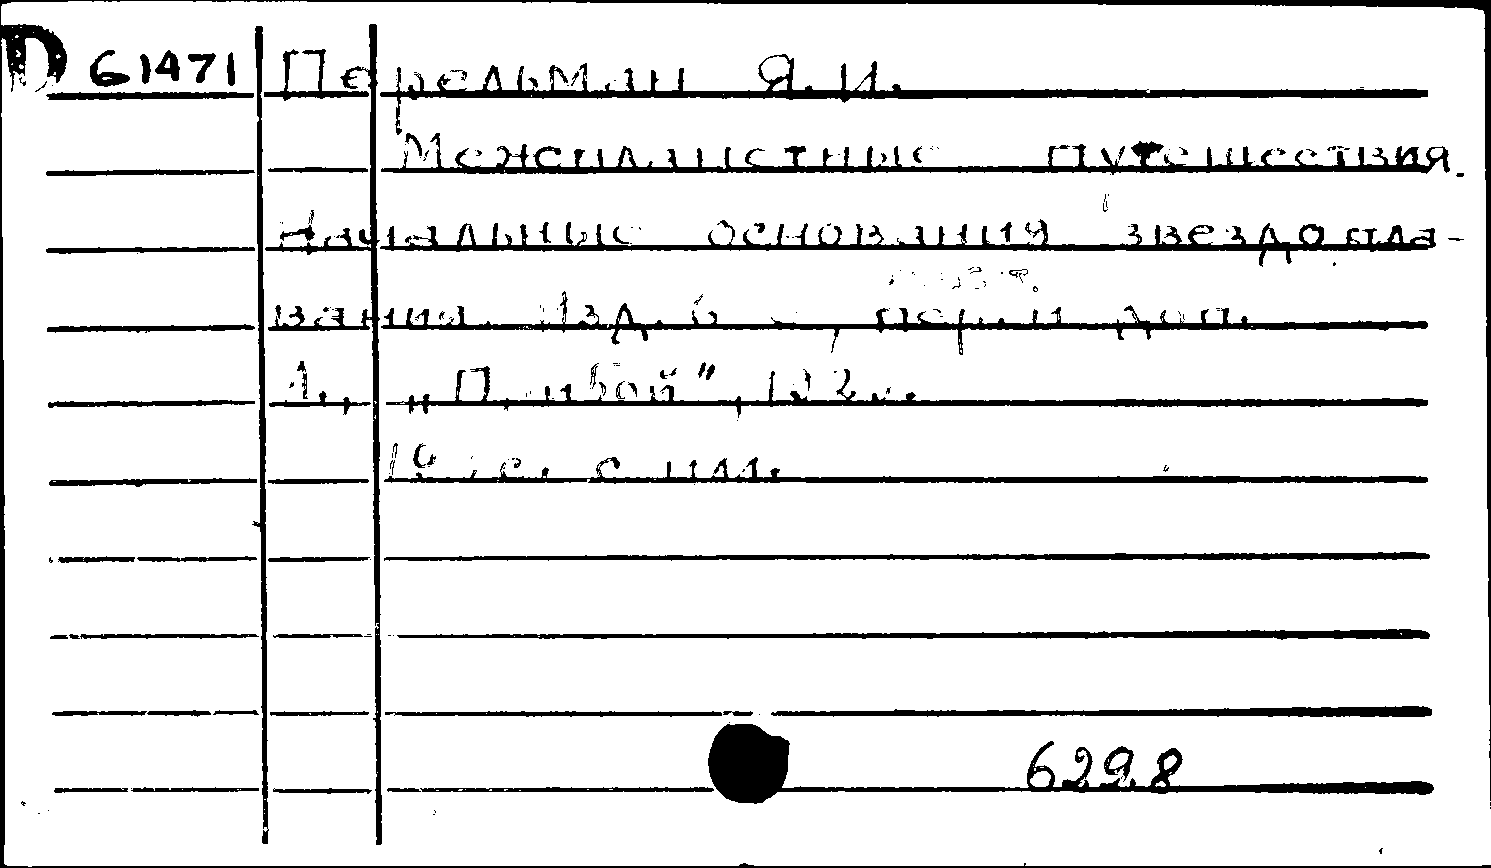 D 61471 Перельман Я. И.
Межпланетные путешествия.
Начальные основания звездопла-
вания. Изд. 6, пер. и доп.
Л., „Прибой",
с. с илл.
629.8